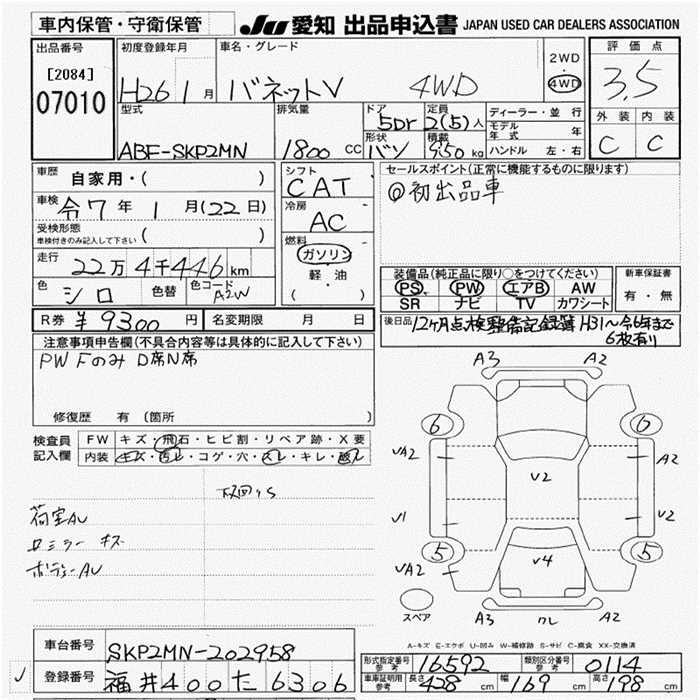 車内保管・守衛保管
JU 愛知 出品申込書 JAPAN USED CAR DEALERS ASSOCIATION
出品番号
[2084]
07010
初度登録年月
H26 1月
車名・グレード
バネットV 4WD
2WD
・
4WD
評価点
3.5
外装 内装
C C
型式
ABF-SKP2MN
排気量
1800 CC
ドア
5Dr
定員
2(5)人
形状
バン
積載
950 kg
ディーラー・並行
モデル年式 年
ハンドル 左・右
車歴
自家用・( )
車検
令7年 1月(22日)
受検形態
車検付きのみ記入して下さい ( )
走行
22万4千446km
色
シロ
色替
色コード
A2W
シフト
CAT
冷房
AC
燃料
ガソリン
軽・油
( )
セールスポイント(正常に機能するものに限ります)
◎初出品車
装備品(純正品に限り○をつけてください)
PS PW エアB AW
SR ナビ TV カワシート
新車保証書
有・無
R券 ¥9300円
名変期限 月 日
後日品 12ヶ月点検整備記録簿 H31〜令6年まで
6枚有り
注意事項申告欄(不具合内容等は具体的に記入して下さい)
PW Fのみ D席N席
修復歴 有 (箇所
検査員
記入欄
FW キズ・飛石・ヒビ割・リペア跡・X要
内装 キズ・汚レ・コゲ・穴・スレ・キレ・酸レ
下回りS
荷室AU
ロミラーキズ
ボディーAU
A3 A2
6 6
UA2 A2
V2
U1 U2
5 5
UA2
V4
スペア
A3 クレ A2
A-キズ E-エクボ U-凹み W-補修跡 S-サビ C-腐食 XX-交換済
車台番号
SKP2MN-202958
登録番号
福井400た6306
形式指定番号
参考
16592
類別区分番号
参考
0114
車庫証明用
参考
長さ 428 cm
幅 169 cm
高さ 198 cm